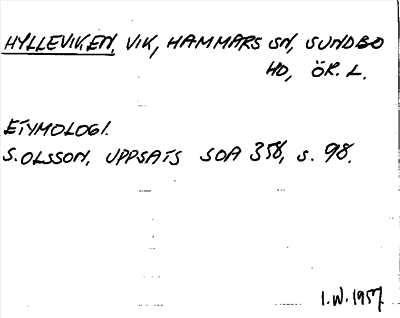 HYLLEVIKEN, VIK, HAMMARS SN, SUNDBO
HD, ÖR. L.
ETYMOLOGI.
S. OLSSON, UPPSATS SOA 358, S. 98.
I.W. 1957